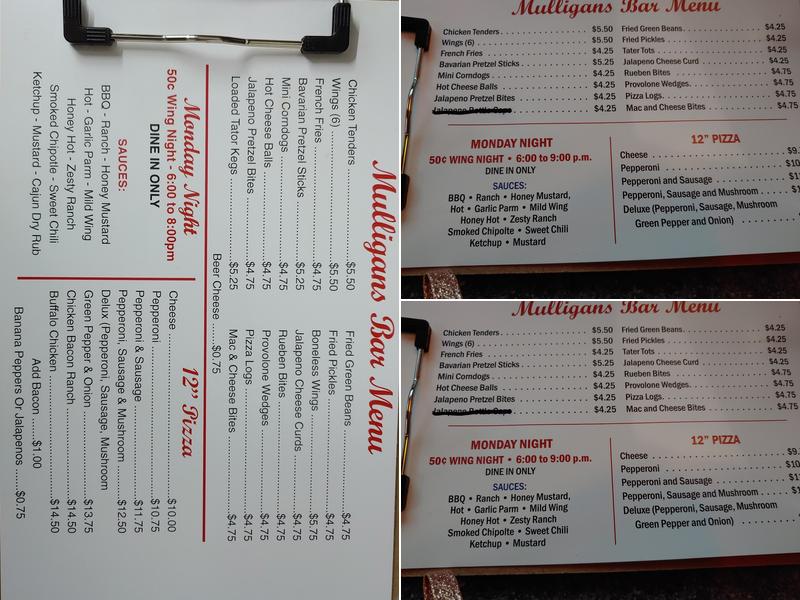 Mulligans Bar Menu
Chicken Tenders $5.50
Wings (6) $5.50
French Fries $4.75
Bavarian Pretzel Sticks $5.25
Mini Corndogs $4.75
Hot Cheese Balls $4.75
Jalapeno Pretzel Bites $4.75
Loaded Tator Kegs $5.25
Fried Green Beans $4.75
Fried Pickles $4.75
Boneless Wings $5.75
Jalapeno Cheese Curds $4.75
Rueben Bites $4.75
Provolone Wedges $4.75
Pizza Logs $4.75
Mac & Cheese Bites $4.75
Beer Cheese $0.75
Monday Night
50c Wing Night - 6:00 to 8:00pm
DINE IN ONLY
SAUCES:
BBQ - Ranch - Honey Mustard
Hot - Garlic Parm - Mild Wing
Honey Hot - Zesty Ranch
Smoked Chipotle - Sweet Chili
Ketchup - Mustard - Cajun Dry Rub
12” Pizza
Cheese $10.00
Pepperoni $10.75
Pepperoni & Sausage $11.75
Pepperoni, Sausage & Mushroom $12.50
Delux (Pepperoni, Sausage, Mushroom
Green Pepper & Onion $13.75
Chicken Bacon Ranch $14.50
Buffalo Chicken $14.50
Add Bacon $1.00
Banana Peppers Or Jalapenos $0.75
Mulligans Bar Menu
Chicken Tenders $5.50
Wings (6) $5.50
French Fries $4.25
Bavarian Pretzel Sticks $5.25
Mini Corndogs $4.25
Hot Cheese Balls $4.25
Jalapeno Pretzel Bites $4.25
$4.25
Fried Green Beans $4.25
Fried Pickles $4.25
Tater Tots $4.25
Jalapeno Cheese Curd $4.25
Rueben Bites $4.75
Provolone Wedges $4.25
Pizza Logs $4.25
Mac and Cheese Bites $4.75
MONDAY NIGHT
50¢ WING NIGHT • 6:00 to 9:00 p.m.
DINE IN ONLY
SAUCES:
BBQ • Ranch • Honey Mustard,
Hot • Garlic Parm • Mild Wing
Honey Hot • Zesty Ranch
Smoked Chipolte • Sweet Chili
Ketchup • Mustard
12” PIZZA
Cheese
Pepperoni
Pepperoni and Sausage
Pepperoni, Sausage and Mushroom
Deluxe (Pepperoni, Sausage, Mushroom
Green Pepper and Onion)
Mulligans Bar Menu
Chicken Tenders $5.50
Wings (6) $5.50
French Fries $4.25
Bavarian Pretzel Sticks $5.25
Mini Corndogs $4.25
Hot Cheese Balls $4.25
Jalapeno Pretzel Bites $4.25
$4.25
Fried Green Beans $4.25
Fried Pickles $4.25
Tater Tots $4.25
Jalapeno Cheese Curd $4.25
Rueben Bites $4.75
Provolone Wedges $4.25
Pizza Logs $4.25
Mac and Cheese Bites $4.75
MONDAY NIGHT
50¢ WING NIGHT • 6:00 to 9:00 p.m.
DINE IN ONLY
SAUCES:
BBQ • Ranch • Honey Mustard,
Hot • Garlic Parm • Mild Wing
Honey Hot • Zesty Ranch
Smoked Chipolte • Sweet Chili
Ketchup • Mustard
12” PIZZA
Cheese
Pepperoni
Pepperoni and Sausage
Pepperoni, Sausage and Mushroom
Deluxe (Pepperoni, Sausage, Mushroom
Green Pepper and Onion)